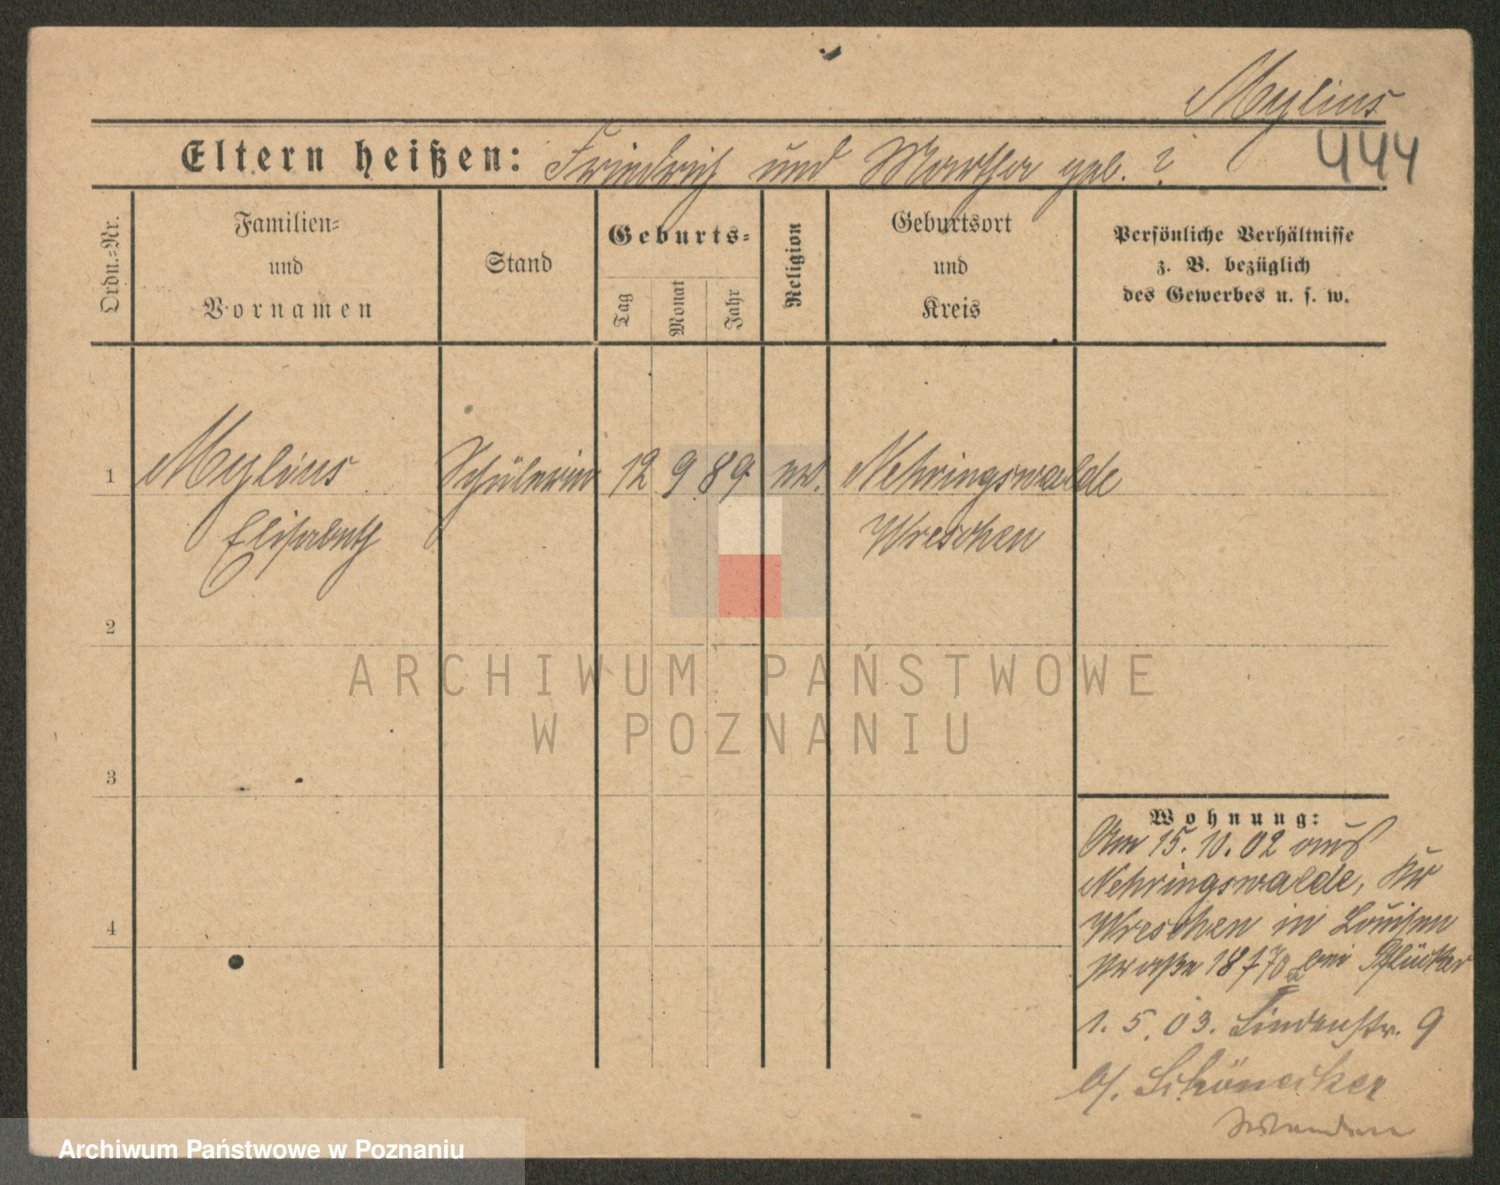 Mylius
444
Eltern heißen: Friedrich und Martha geb. ?
Ordn.-Nr.
Familien-
und
Vornamen
Stand
Geburts-
Tag
Monat
Jahr
Religion
Geburtsort
und
Kreis
Persönliche Verhältnisse
z. B. bezüglich
des Gewerbes u. s. w.
1 Mylius Schülerin 12 9 89 ev. Nehringswalde
Elisabeth Wreschen
2
3
4
Wohnung:
Am 15. 10. 02 aus
Nehringswalde, Kr
Wreschen in Louisen
straße 18 bei Pflücker
1. 5. 03. Lindenstr. 9
b/. Schönecker
ARCHIWUM PAŃSTWOWE
W POZNANIU
Archiwum Państwowe w Poznaniu